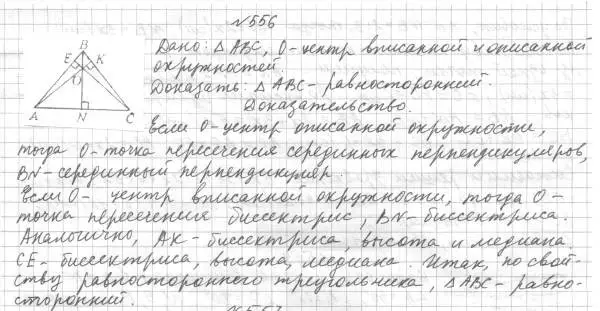 №556
B
E K
O
A N C
Дано: △ABC, O-центр вписанной и описанной
окружностей.
Доказать: △ABC- равносторонний.
Доказательство.
Если O-центр описанной окружности,
тогда O-точка пересечения серединных перпендикуляров,
BN-серединный перпендикуляр.
Если O- центр вписанной окружности, тогда O-
точка пересечения биссектрис, BN-биссектриса.
Аналогично, AK-биссектриса, высота и медиана,
CE- биссектриса, высота, медиана. Итак, по свой-
ству равностороннего треугольника, △ABC-равно-
сторонний.